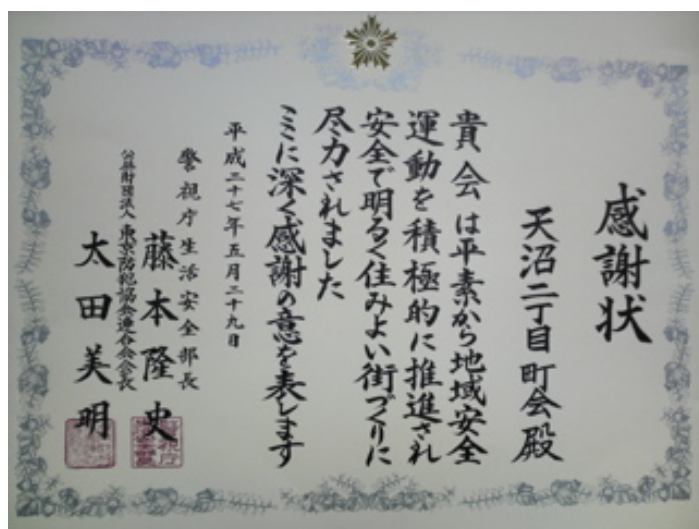 感謝状
天沼二丁目町会殿
貴会は平素から地域安全
運動を積極的に推進され
安全で明るく住みよい街づくりに
尽力されました
ここに深く感謝の意を表します
平成二十七年五月二十九日
警視庁生活安全部長
藤本隆史
公益財団法人 東京防犯協会連合会会長
太田美明